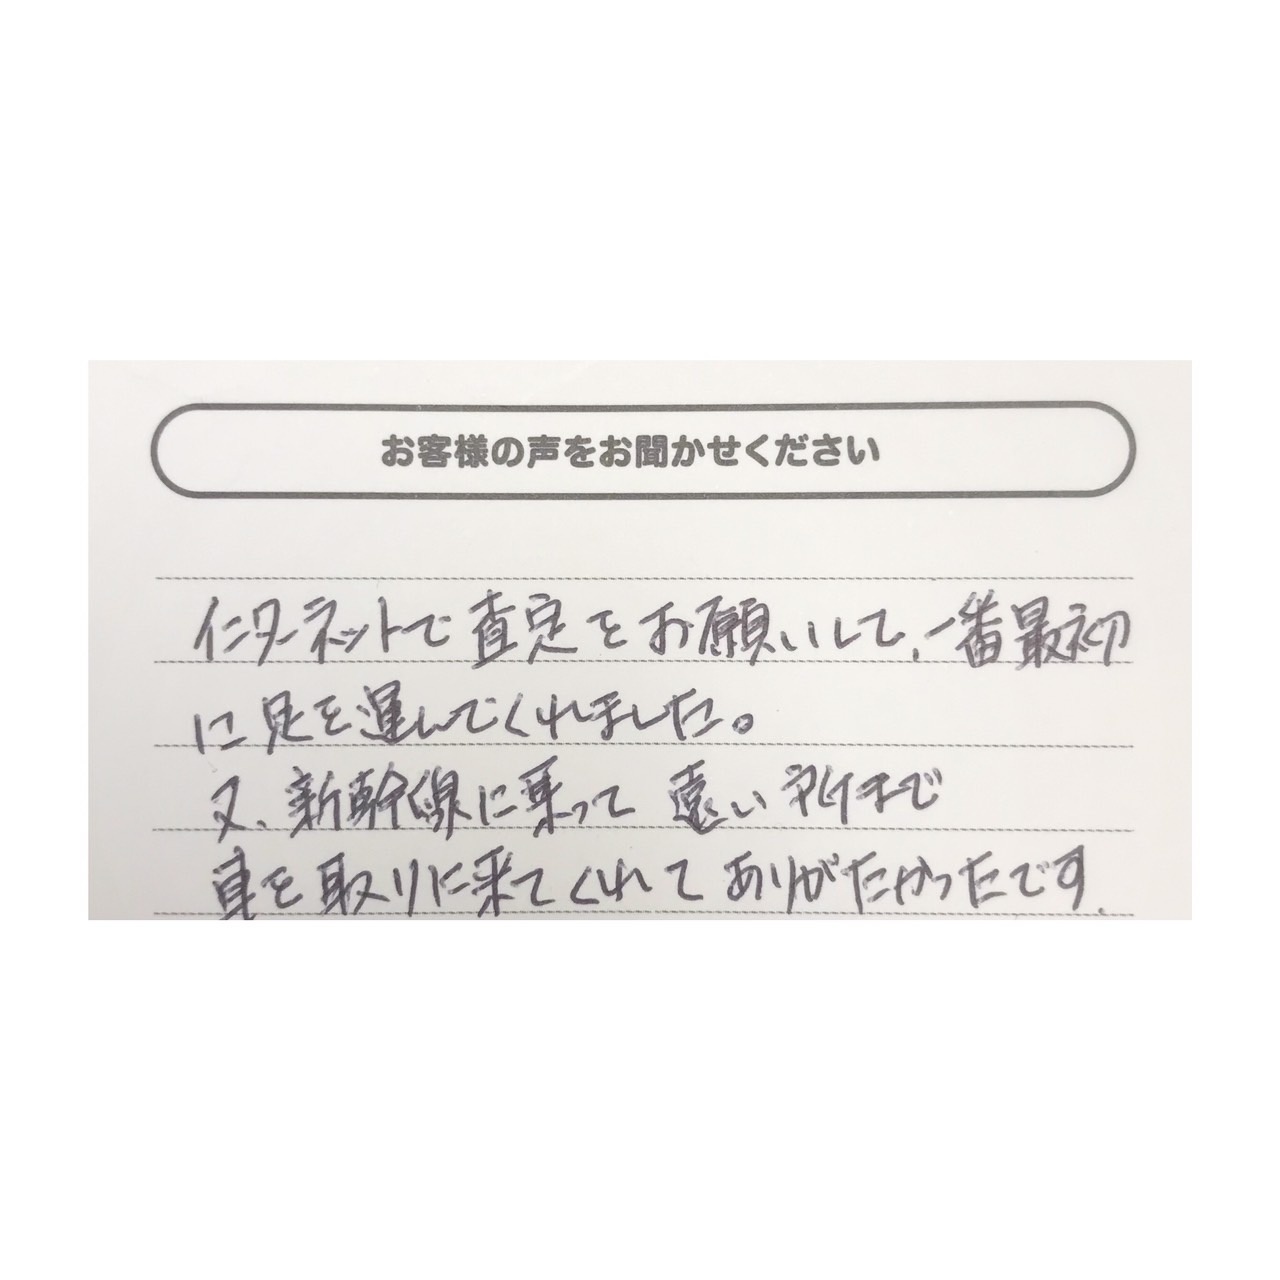 お客様の声をお聞かせください
インターネットで査定をお願いして、一番最初
に足を運んでくれました。
又、新幹線に乗って 遠い所まで
車を取りに来てくれて ありがたかったです.